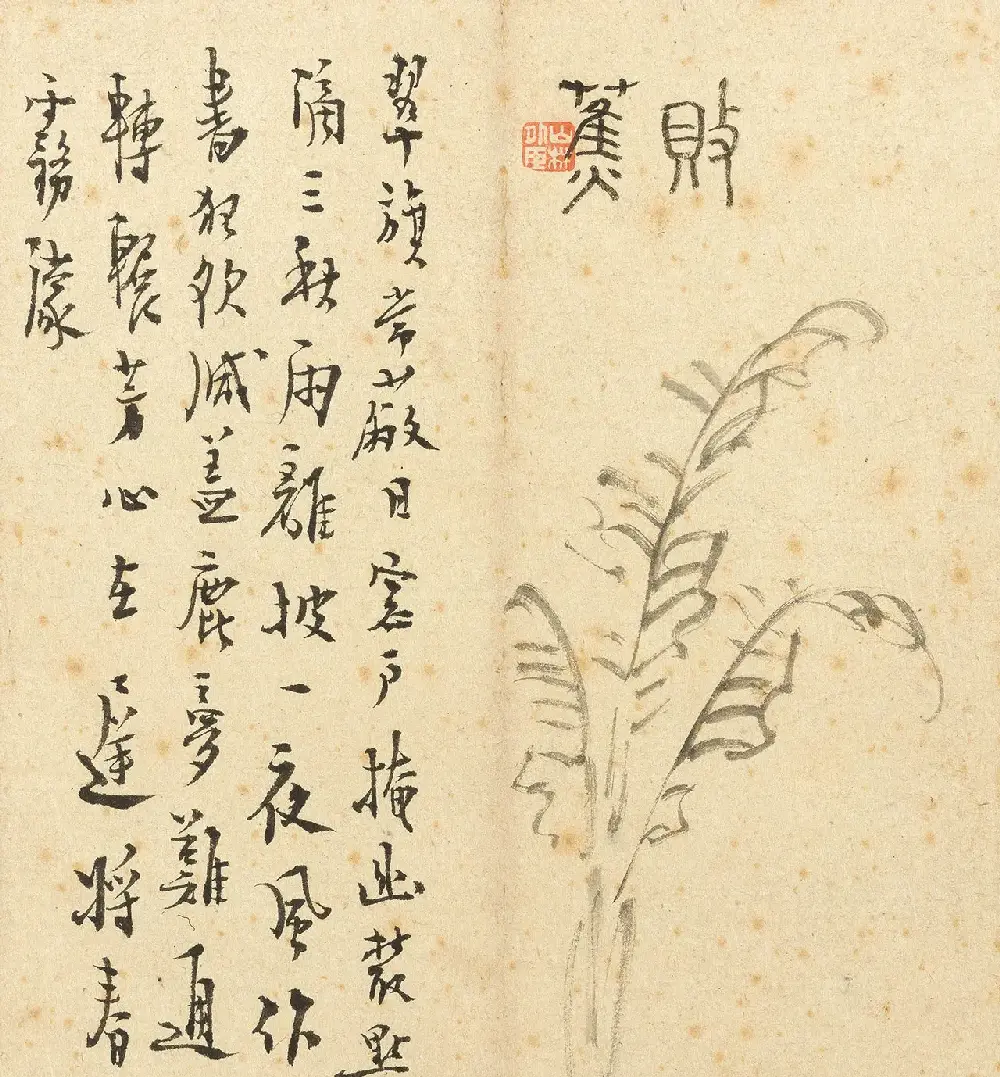 敗蕉
山林外臣
翠旗常蔽日窓戶掩幽叢點
滴三秋雨離披一夜風作
書狂欲減蓋鹿夢難通
轉輾芳心在將春
霧濛